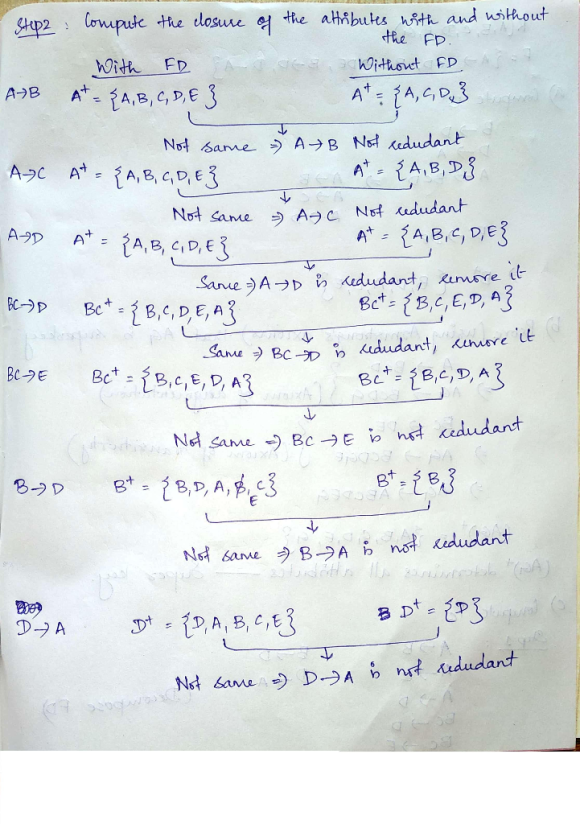 Step2 : Compute the closure of the attributes with and without
the FD.
With FD Without FD
A→B A+ = {A,B,C,D,E} A+ = {A,C,D,}
Not same ⇒ A→B Not redudant
A→C A+ = {A,B,C,D,E} A+ = {A,B,D,}
Not same ⇒ A→C Not redudant
A→D A+ = {A,B,C,D,E} A+ = {A,B,C,D,E}
Same ⇒ A→D is redudant, remove it
BC→D BC+ = {B,C,D,E,A} BC+ = {B,C,E,D,A}
Same ⇒ BC→D is redudant, remove it
BC→E BC+ = {B,C,E,D,A} BC+ = {B,C,D,A}
Not same ⇒ BC→E is not redudant
B→D B+ = {B,D,A,B,C} B+ = {B,}
E
Not same ⇒ B→A is not redudant
D→A D+ = {D,A,B,C,E} B D+ = {D}
Not same ⇒ D→A is not redudant